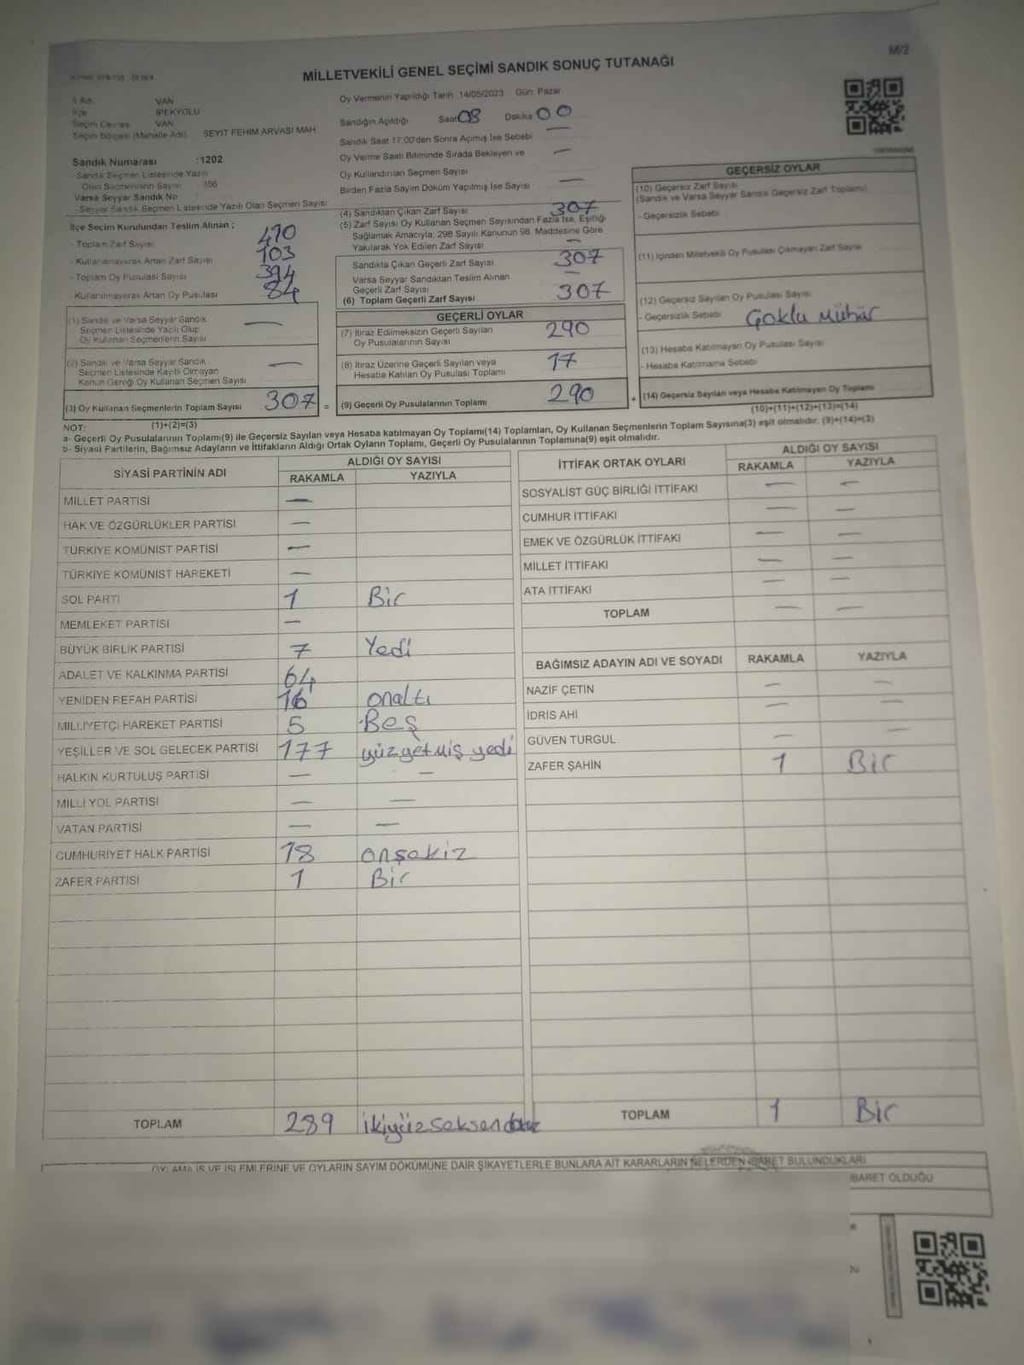 M/2
MİLLETVEKİLİ GENEL SEÇİMİ SANDIK SONUÇ TUTANAĞI
VAN
İPEKYOLU
Seçim Çevresi VAN
Seçim Bölgesi (Mahalle Adı) SEYİT FEHİM ARVASİ MAH.
Sandık Numarası :1202
Sandık Seçmen Listesinde Yazılı
Olan Seçmenlerin Sayısı
Varsa Seyyar Sandık No
- Seyyar Sandık Seçmen Listesinde Yazılı Olan Seçmen Sayısı
İlçe Seçim Kurulundan Teslim Alınan ;
- Toplam Zarf Sayısı 410
- Kullanılmayarak Artan Zarf Sayısı 103
- Toplam Oy Pusulası Sayısı 394
- Kullanılmayarak Artan Oy Pusulası 84
(1) Sandık ve Varsa Seyyar Sandık —
Seçmen Listesinde Yazılı Olup
Oy Kullanan Seçmenlerin Sayısı
(2) Sandık ve Varsa Seyyar Sandık —
Seçmen Listesinde Kayıtlı Olmayan
Kanun Gereği Oy Kullanan Seçmen Sayısı
(3) Oy Kullanan Seçmenlerin Toplam Sayısı 307 =
(1)+(2)=(3)
Oy Vermenin Yapıldığı Tarih :14/05/2023 Gün: Pazar
Sandığın Açıldığı Saat 08 Dakika 00
Sandık Saat 17:00'den Sonra Açılmış İse Sebebi —
Oy Verme Saati Bitiminde Sırada Bekleyen ve —
Oy Kullandırılan Seçmen Sayısı
Birden Fazla Sayım Döküm Yapılmış İse Sayısı —
(4) Sandıktan Çıkan Zarf Sayısı 307
(5) Zarf Sayısı Oy Kullanan Seçmen Sayısından Fazla İse, Eşitliği
Sağlamak Amacıyla; 298 Sayılı Kanunun 98. Maddesine Göre
Yakılarak Yok Edilen Zarf Sayısı —
Sandıkta Çıkan Geçerli Zarf Sayısı 307
Varsa Seyyar Sandıktan Teslim Alınan —
Geçerli Zarf Sayısı
(6) Toplam Geçerli Zarf Sayısı 307
GEÇERLİ OYLAR
(7) İtiraz Edilmeksizin Geçerli Sayılan 290
Oy Pusulalarının Sayısı
(8) İtiraz Üzerine Geçerli Sayılan veya 17
Hesaba Katılan Oy Pusulası Toplamı
(9) Geçerli Oy Pusulalarının Toplamı 290 +
GEÇERSİZ OYLAR
(10) Geçersiz Zarf Sayısı
(Sandık ve Varsa Seyyar Sandık Geçersiz Zarf Toplamı)
- Geçersizlik Sebebi
(11) İçinden Milletvekili Oy Pusulası Çıkmayan Zarf Sayısı
(12) Geçersiz Sayılan Oy Pusulası Sayısı
- Geçersizlik Sebebi Çoklu Mühür
(13) Hesaba Katılmayan Oy Pusulası Sayısı
- Hesaba Katılmama Sebebi
(14) Geçersiz Sayılan veya Hesaba Katılmayan Oy Toplamı
(10)+(11)+(12)+(13)=(14)
NOT:
a- Geçerli Oy Pusulalarının Toplamı(9) ile Geçersiz Sayılan veya Hesaba katılmayan Oy Toplamı(14) Toplamları, Oy Kullanan Seçmenlerin Toplam Sayısına(3) eşit olmalıdır. (9)+(14)=(3)
b- Siyasi Partilerin, Bağımsız Adayların ve İttifakların Aldığı Ortak Oyların Toplamı, Geçerli Oy Pusulalarının Toplamına(9) eşit olmalıdır.
SİYASİ PARTİNİN ADI ALDIĞI OY SAYISI
RAKAMLA YAZIYLA
MİLLET PARTİSİ —
HAK VE ÖZGÜRLÜKLER PARTİSİ —
TÜRKİYE KOMÜNİST PARTİSİ —
TÜRKİYE KOMÜNİST HAREKETİ —
SOL PARTİ 1 Bir
MEMLEKET PARTİSİ —
BÜYÜK BİRLİK PARTİSİ 7 Yedi
ADALET VE KALKINMA PARTİSİ 64
YENİDEN REFAH PARTİSİ 16 onaltı
MİLLİYETÇİ HAREKET PARTİSİ 5 Beş
YEŞİLLER VE SOL GELECEK PARTİSİ 177 yüzyetmiş yedi
HALKIN KURTULUŞ PARTİSİ — —
MİLLİ YOL PARTİSİ — —
VATAN PARTİSİ — —
CUMHURİYET HALK PARTİSİ 18 onsekiz
ZAFER PARTİSİ 1 Bir
TOPLAM 289 ikiyüzseksendokuz
İTTİFAK ORTAK OYLARI ALDIĞI OY SAYISI
RAKAMLA YAZIYLA
SOSYALİST GÜÇ BİRLİĞİ İTTİFAKI — —
CUMHUR İTTİFAKI — —
EMEK VE ÖZGÜRLÜK İTTİFAKI — —
MİLLET İTTİFAKI — —
ATA İTTİFAKI — —
TOPLAM — —
BAĞIMSIZ ADAYIN ADI VE SOYADI RAKAMLA YAZIYLA
NAZİF ÇETİN — —
İDRİS AHİ — —
GÜVEN TURGUL — —
ZAFER ŞAHİN 1 Bir
TOPLAM 1 Bir
OYLAMA İŞ VE İŞLEMLERİNE VE OYLARIN SAYIM DÖKÜMÜNE DAİR ŞİKAYETLERLE BUNLARA AİT KARARLARIN NELERDEN İBARET BULUNDUKLARI
İBARET OLDUĞU